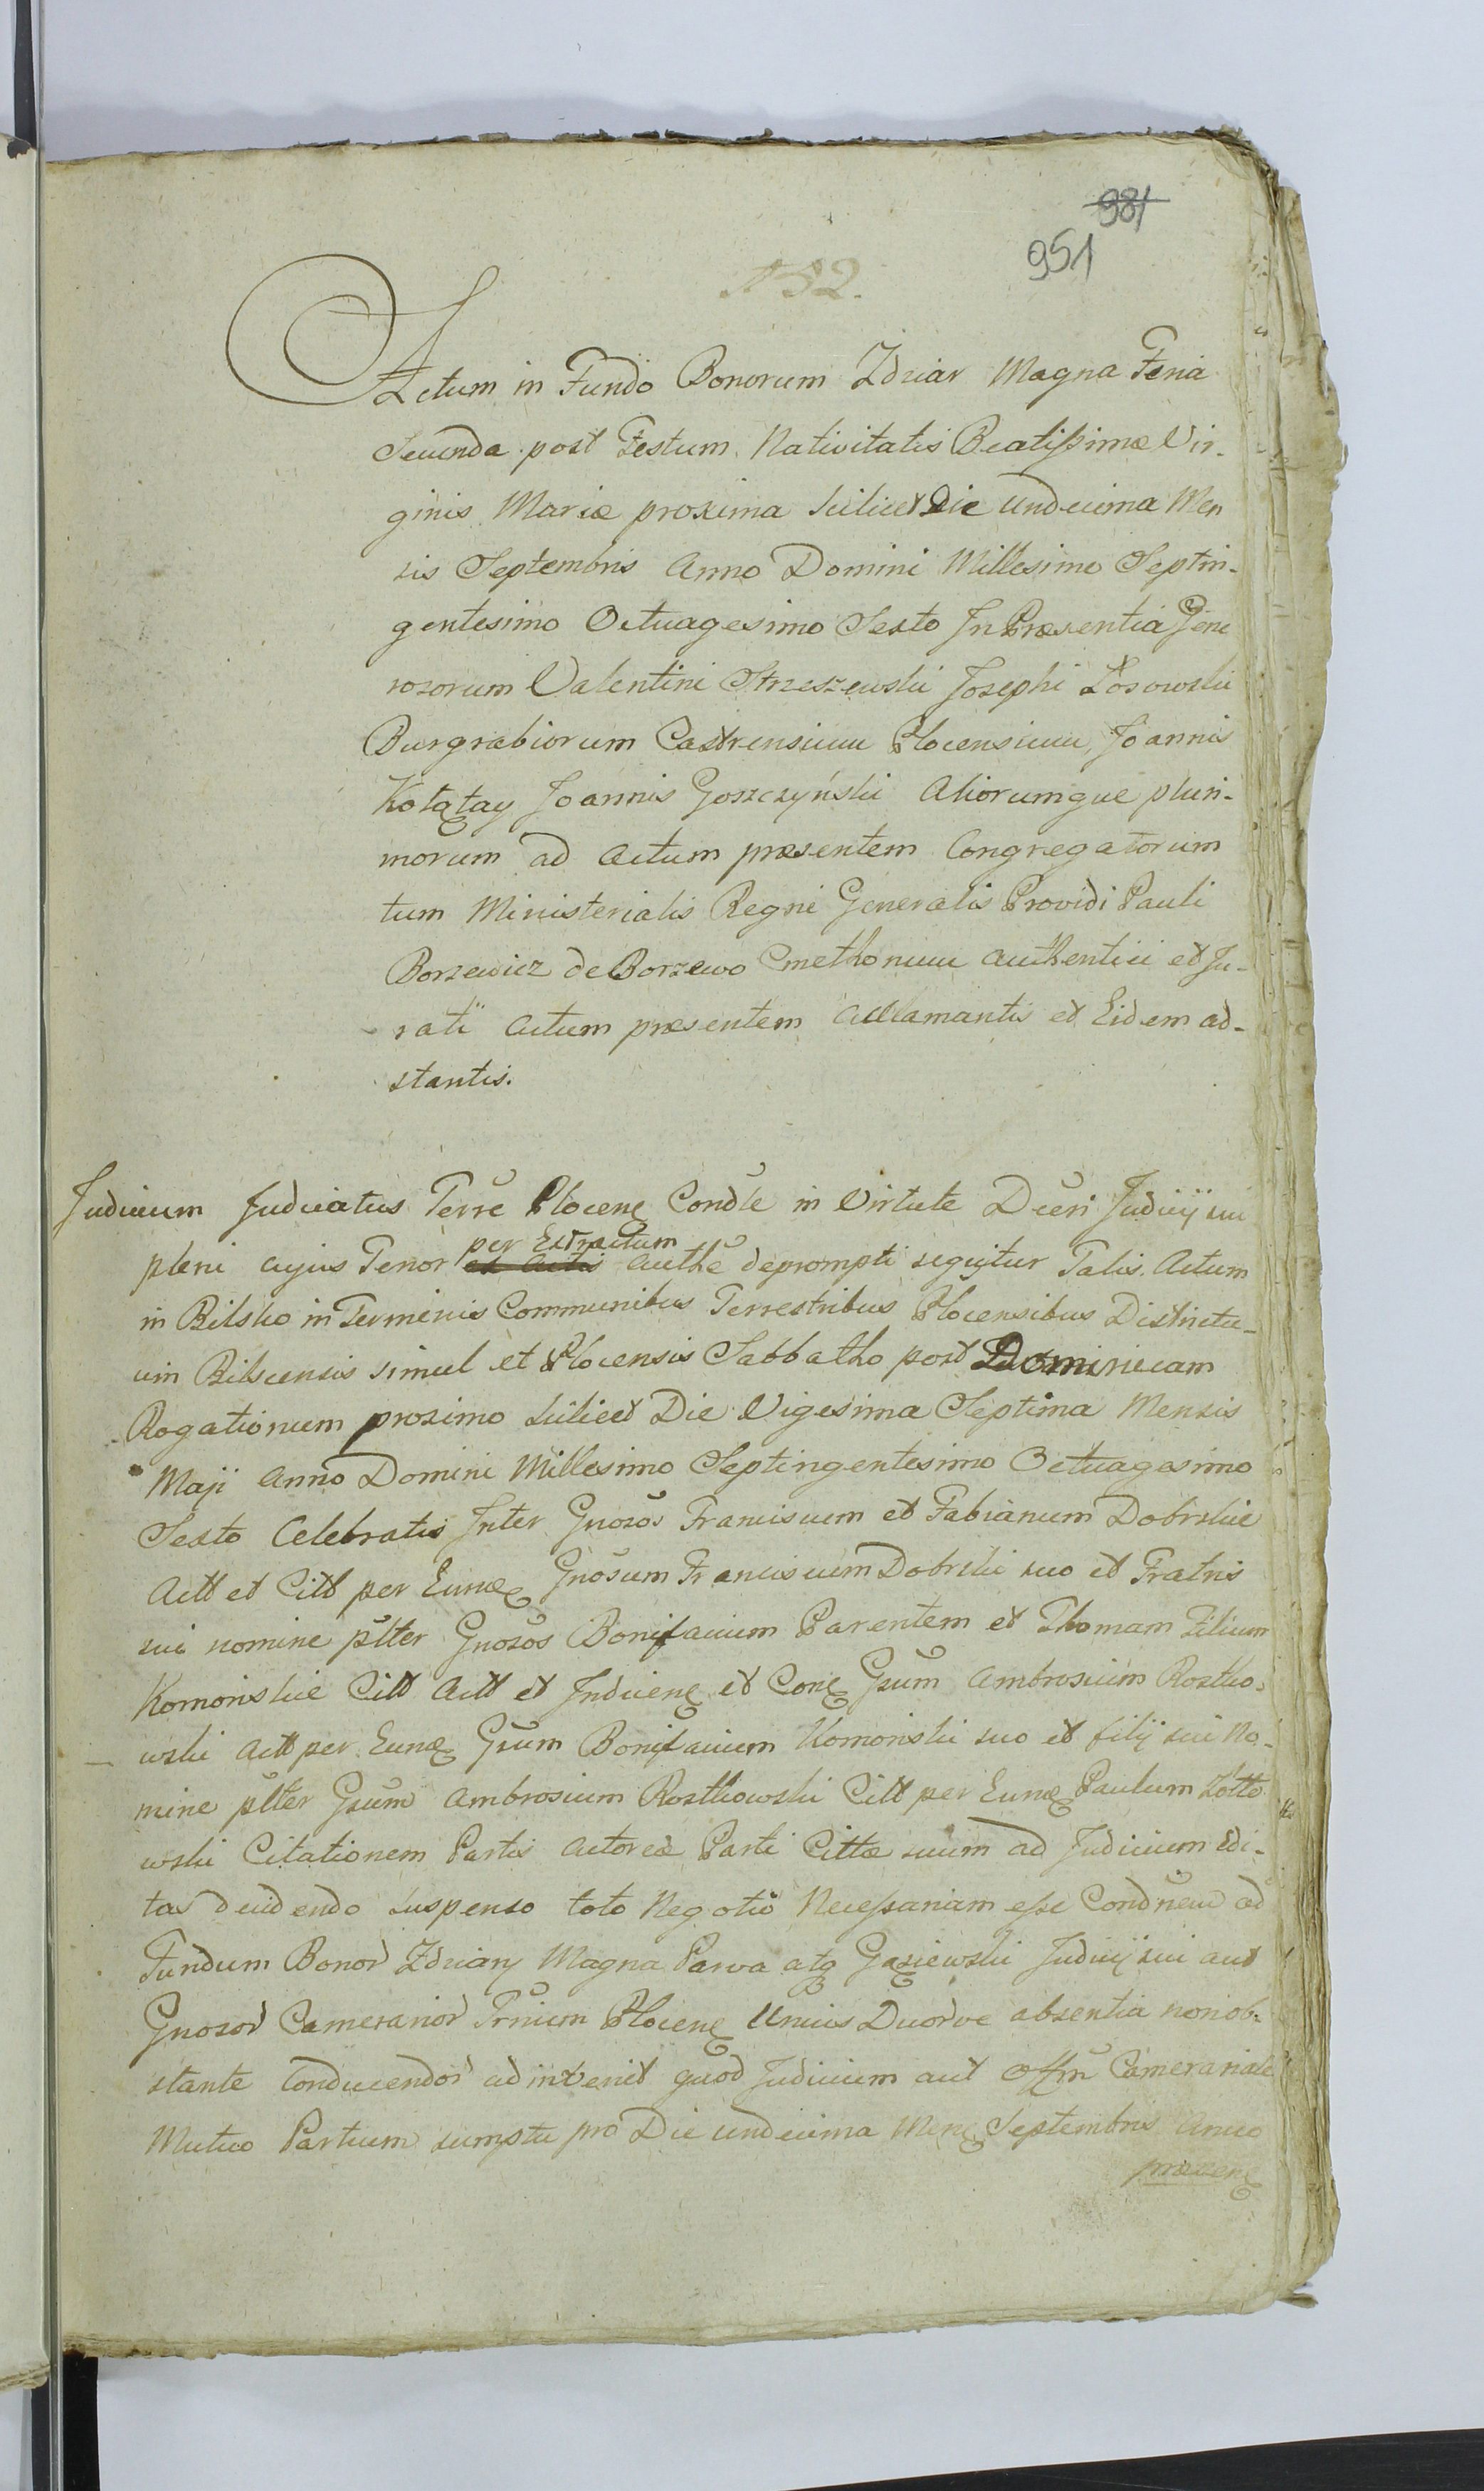 981
951
N 52.
Actum in Fundo Bonorum Zdziar Magna Feria
Secunda post Festum Nativitatis Beatissimæ Vir-
ginis Mariæ proxima scilicet Die undecima Men
sis Septembris Anno Domini Millesimo Septin-
gentesimo Octuagesimo Sexto In Præsentia Gene
rosorum Valentini Strzeszewski Josephi Łosowski
Burgrabiorum Castrensium Plocensium, Joannis
Kołątay Joannis Goszczyński Aliorumque pluri-
morum ad Actum præsentem Congregatorum
tum Ministerialis Regni Generalis Providi Pauli
Borzewicz de Borzewo Cmethonum Authentici et Ju-
rati Actum præsentem Acclamantis et Eidem ad-
stantis.
Judicium Judiciatus Terre Plocen Condle in Virtute Decri Judicij sui
pleni cujus Tenor per Extractum Authe deprompti sequitur Talis. Actum
in Bilsko in Terminis Communibus Terrestribus Plocensibus Districtu-
um Bilscensis simul et Plocensis Sabbatho post Dominicam
Rogationum proximo scilicet Die Vigesima Septima Mensis
Maji Anno Domini Millesimo Septingentesimo Octuagesimo
Sexto Celebratis Inter Gnosos Franciscum et Fabianum Dobrskie
Actt et Citt per Eund Gnosum Franciscum Dobrski suo et Fratris
sui nomine pltter Gnosos Bonifacium Parentem et Thomam Filium
Komorskie Citt Actt et Inducen et Con Gsum Ambrosium Rostko-
wski Actt per Eund Gsum Bonifacium Komorski suo et filij sui No-
mine pltter Gsum Ambrosium Rostkowski Citt per Eund Paulum Żółto
wski Citationem Partis Actoreæ Parti Cittæ suum ad Judicium Edi-
tas decidendo suspenso toto Negotio Necessariam esse Condnem ad
Fundum Bonor Zdziary Magna Parva atq Gąsiewski Judicij sui aut
Gnosor Camerarior Trrium Plocen Unius Duorve absentia non ob-
stante conducendor adinvenit quod Judicium aut Offm Camerariale
Mutuo Partium sumptu pro Die undecima Men Septembris Anno
præsen